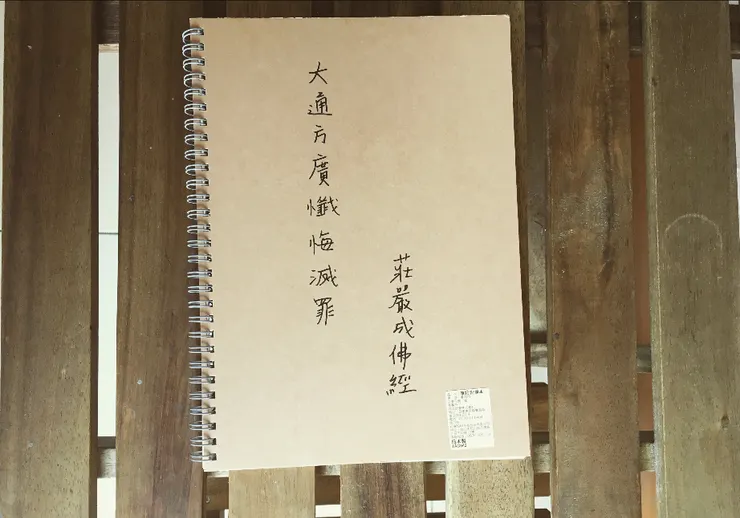 大通方廣懺悔滅罪
莊嚴成佛經